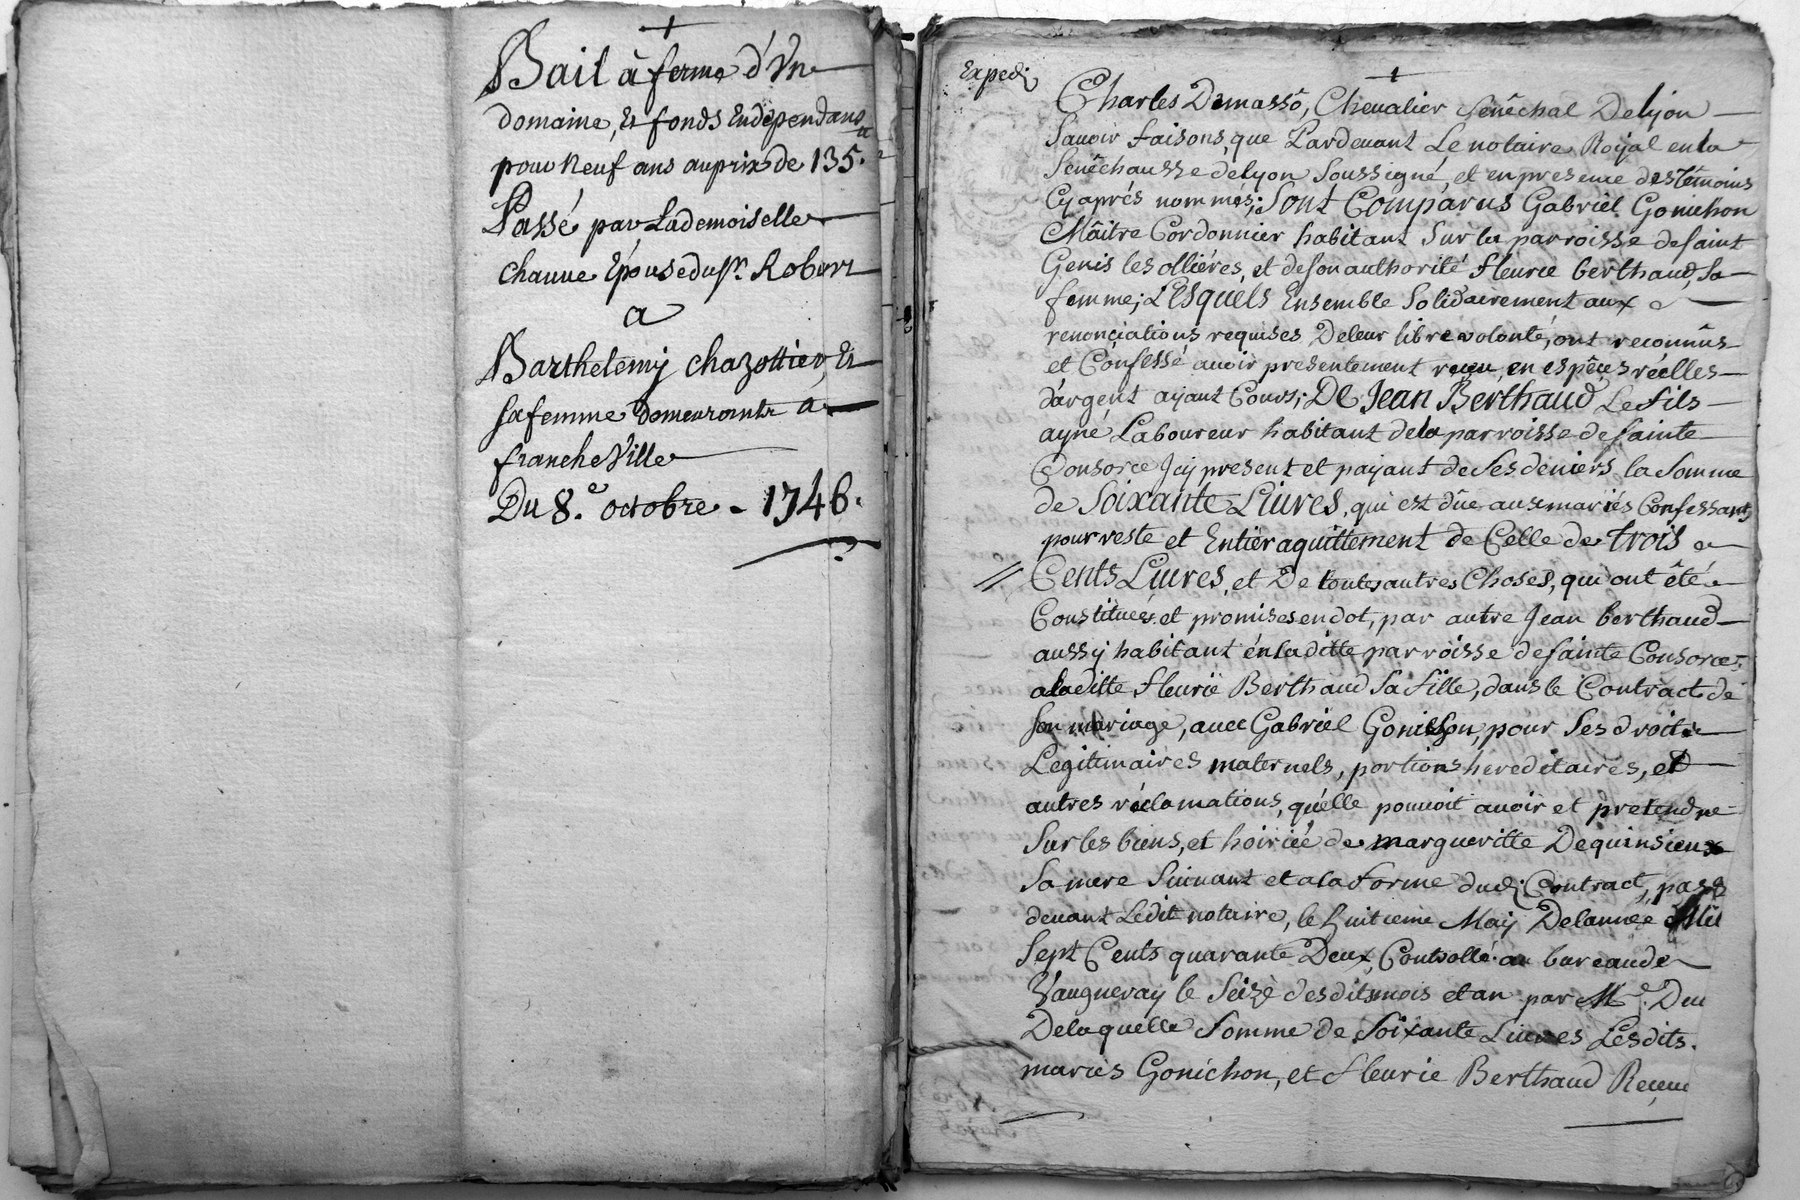 Bail à ferme d'Vn
domaine, Et fonds Endépendans
pour Neuf ans au prix de 135.ᵗᵗ
Passé par La demoiselle
chauue Epouse du Sr. Robert
a
Barthelemy chazottier, Et
sa femme demeurants a
francheVille
Du 8.e octobre - 1746.
Expedi
Charles Demassô, Cheualier Senêchal De lyon
Sauoir faisons, que Pardeuant Le notaire Royal en la
Senêchaussée de lyon Soussigné, et en presence des Têmoins
Cy aprés nommés; Sont Comparus Gabriel Gonichon
Mâitre Cordonnier habitant Sur la parroisse de Saint
Genis les olliéres, et de son authorité fleurie berthaud, Sa
femme; LEsquéls Ensemble Solidairement aux
renonciations requises De leur libre volonté, ont reconnûs
et Confessé auoir presentement reçeu, en espêces réelles
d'argent ayant Cours; De Jean Berthaud Le fils
ayné Laboureur habitant de la parroisse de Sainte
Consorce Jcy present et payant de Ses deniers la Somme
de Soixante Liures, qui est dûe aux mariés Confessants
pour reste et Entiër aquittement de Celle de trois
// Cents Liures, et De toutes autres Choses, qui ont êté
Constituées et promises en dot, par autre Jean berthaud
aussy habitant én la ditte parroisse de Sainte Consorce
a la ditte fleurië Berthaud Sa fille, dans le Contract de
Son mariage, auec Gabriel Gonichon, pour Ses droits
Legitimaires maternels, portions hereditaires, et
autres réclamations, qu'elle pouuoit auoir et pretendre
Sur les biens, et hoiriée de margueritte Dequinsieux
Sa mere Suiuant et a la forme dud; Contract, passé
deuant Ledit notaire, le huitieme May De l'année Mil
Sept Cents quarante Deux, Controllé au bureau de
Vaugneray le Seizé desdits mois et an par Me. Duc
De laquelle Somme de Soixante Liures Lesdits
mariés Gonichon, et fleurie Berthaud Reçeue